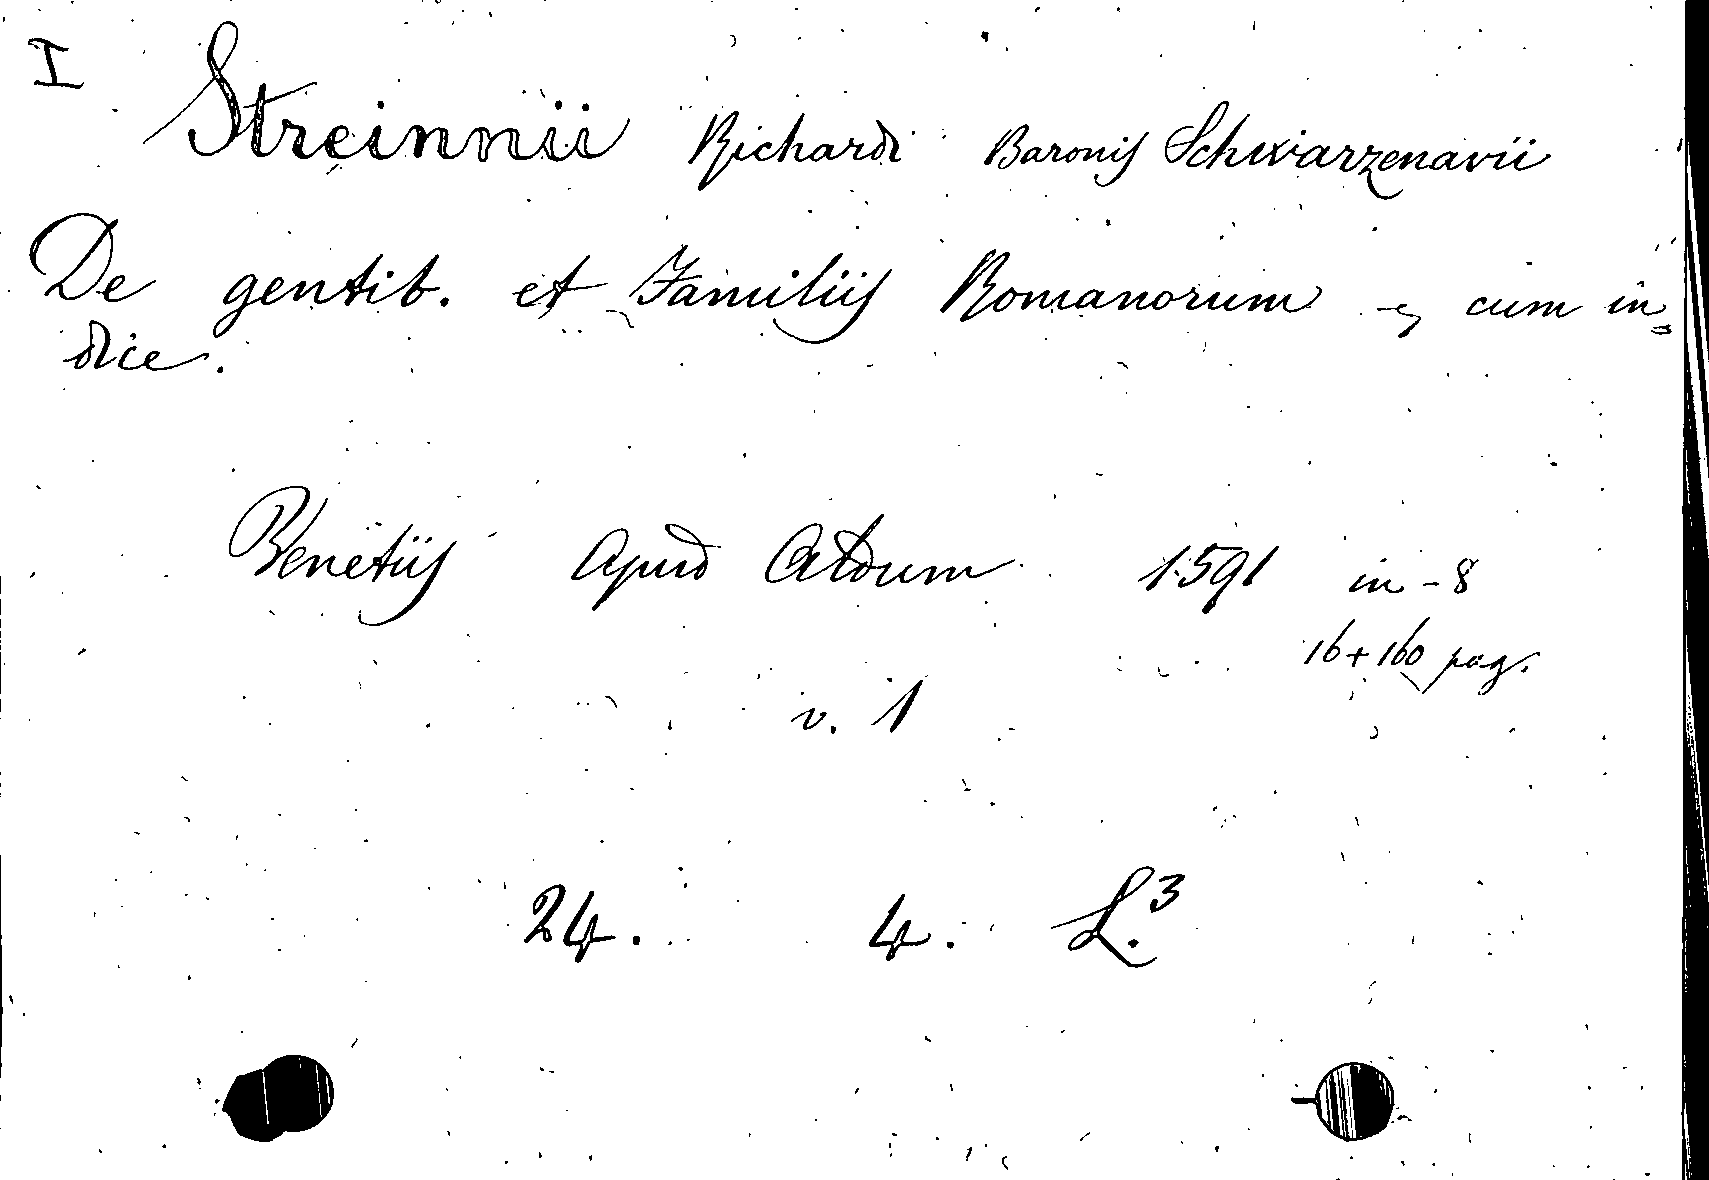 I
Streinnii Richardi Baronis Schwarzenavii
De gentib. et Familiis Romanorum cum in=
dice.
Venetiis Apud Aldum 1591 in-8
16+160 pag.
v. 1
24. 4. L.3